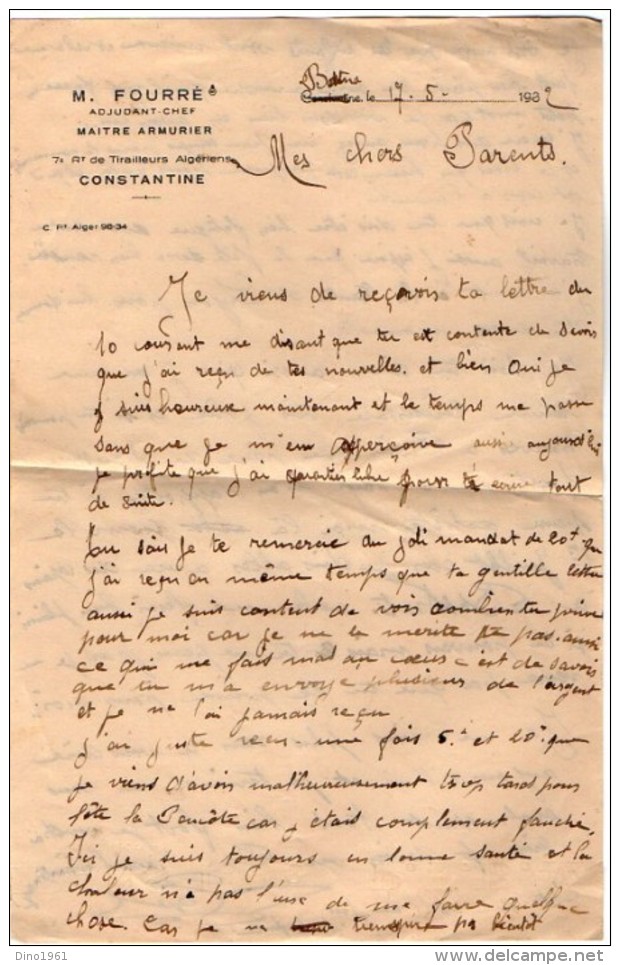 M. FOURRÉ
ADJUDANT-CHEF
MAITRE ARMURIER
7e Rt de Tirailleurs Algériens
CONSTANTINE
C. Pal Alger 98-34
Batna le 17-5- 1932
Mes chers Parents.
Je viens de reçevois ta lettre du
10 courant me disant que tu est contente de savois
que j'ai reçu de tes nouvelles. et bien Oui je
suis heureuse maintenant et le temps me passe
sans que je m'en apperçoive aussi aujourd'hui
je profite que j'ai quartier libre pour té ecrire tout
de suite.
Tu sais je te remercie du joli mandat de 20f que
j'ai reçu en même temps que ta gentille lettre
aussi je suis content de vois combien tu
pour moi car je ne le merite pas. aussi
ce qui me fais mal au cœur c est de savois
que tu m'a envoye plusieurs de l'argent
et je ne l'ai jamais reçu
j'ai juste reçu une fois 5.f et 20f. que
je viens d'avois malheureusement trop tard pour
fête la Pencôte car j'étais complement fauché.
Ici je suis toujours en bonne santé et la
chaleur n'a pas l'use de me faire quelque
chose. Car je ne transpire pas bientôt
Dino1961
delcampe.net